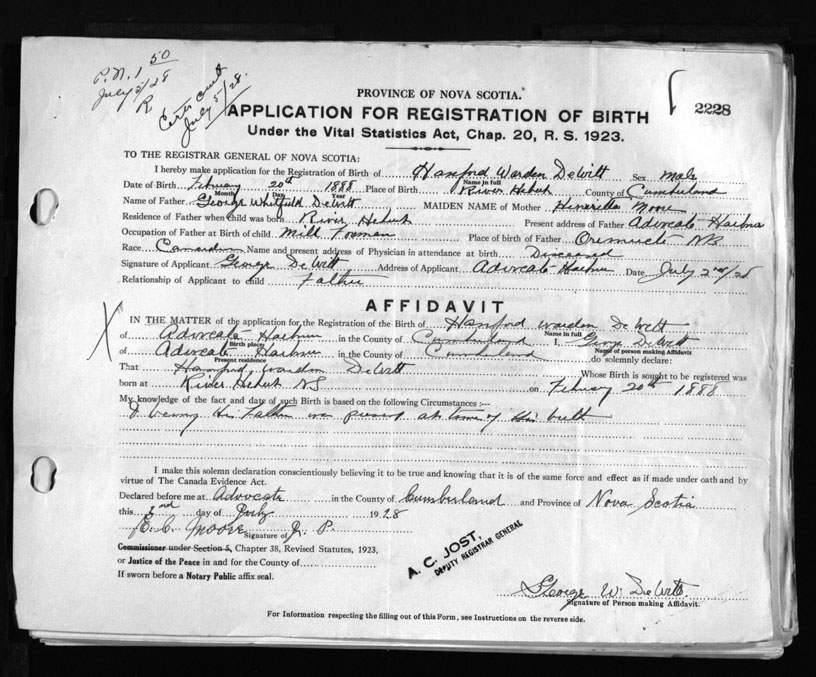 P.N. 1 50
July 5/28
R
July 5/28.
PROVINCE OF NOVA SCOTIA.
2228
APPLICATION FOR REGISTRATION OF BIRTH
Under the Vital Statistics Act, Chap. 20, R. S. 1923.
TO THE REGISTRAR GENERAL OF NOVA SCOTIA:
I hereby make application for the Registration of Birth of Hanford Warden DeWitt Sex Male
Name in full
Date of Birth Febuary 20th 1888 Place of Birth River Hebert County of Cumberland
Month Day Year
Name of Father George Whitfield DeWitt MAIDEN NAME of Mother Henerietta Moore
Residence of Father when child was born River Hebert Present address of Father Advocate Harbor
Occupation of Father at Birth of child Mill Foreman Place of birth of Father Oromucto NB
Race Canadian Name and present address of Physician in attendance at birth Diseased
Signature of Applicant George DeWitt Address of Applicant Advocate Harbour Date July 2nd/28
Relationship of Applicant to child Father
AFFIDAVIT
IN THE MATTER of the application for the Registration of the Birth of Hanford Warden DeWitt
Name in full
of Advocate Harbour in the County of Cumberland I, George DeWitt
Birth place Name of person making Affidavit
of Advocate Harbour in the County of Cumberland do solemnly declare:
Present residence
That Hanford Warden DeWitt Whose Birth is sought to be registered was
born at River Hebert NS on Febuary 20th 1888
My knowledge of the fact and date of such Birth is based on the following Circumstances :—
I being His Father was present at time of His birth
I make this solemn declaration conscientiously believing it to be true and knowing that it is of the same force and effect as if made under oath and by
virtue of The Canada Evidence Act.
Declared before me at Advocate in the County of Cumberland and Province of Nova Scotia
this 2nd day of July 1928
E. C. Moore J. P.
Signature of
Commissioner under Section 5, Chapter 38, Revised Statutes, 1923,
or Justice of the Peace in and for the County of
If sworn before a Notary Public affix seal.
A. C. JOST,
DEPUTY REGISTRAR GENERAL
George W. DeWitt
Signature of Person making Affidavit.
For Information respecting the filling out of this Form, see Instructions on the reverse side.